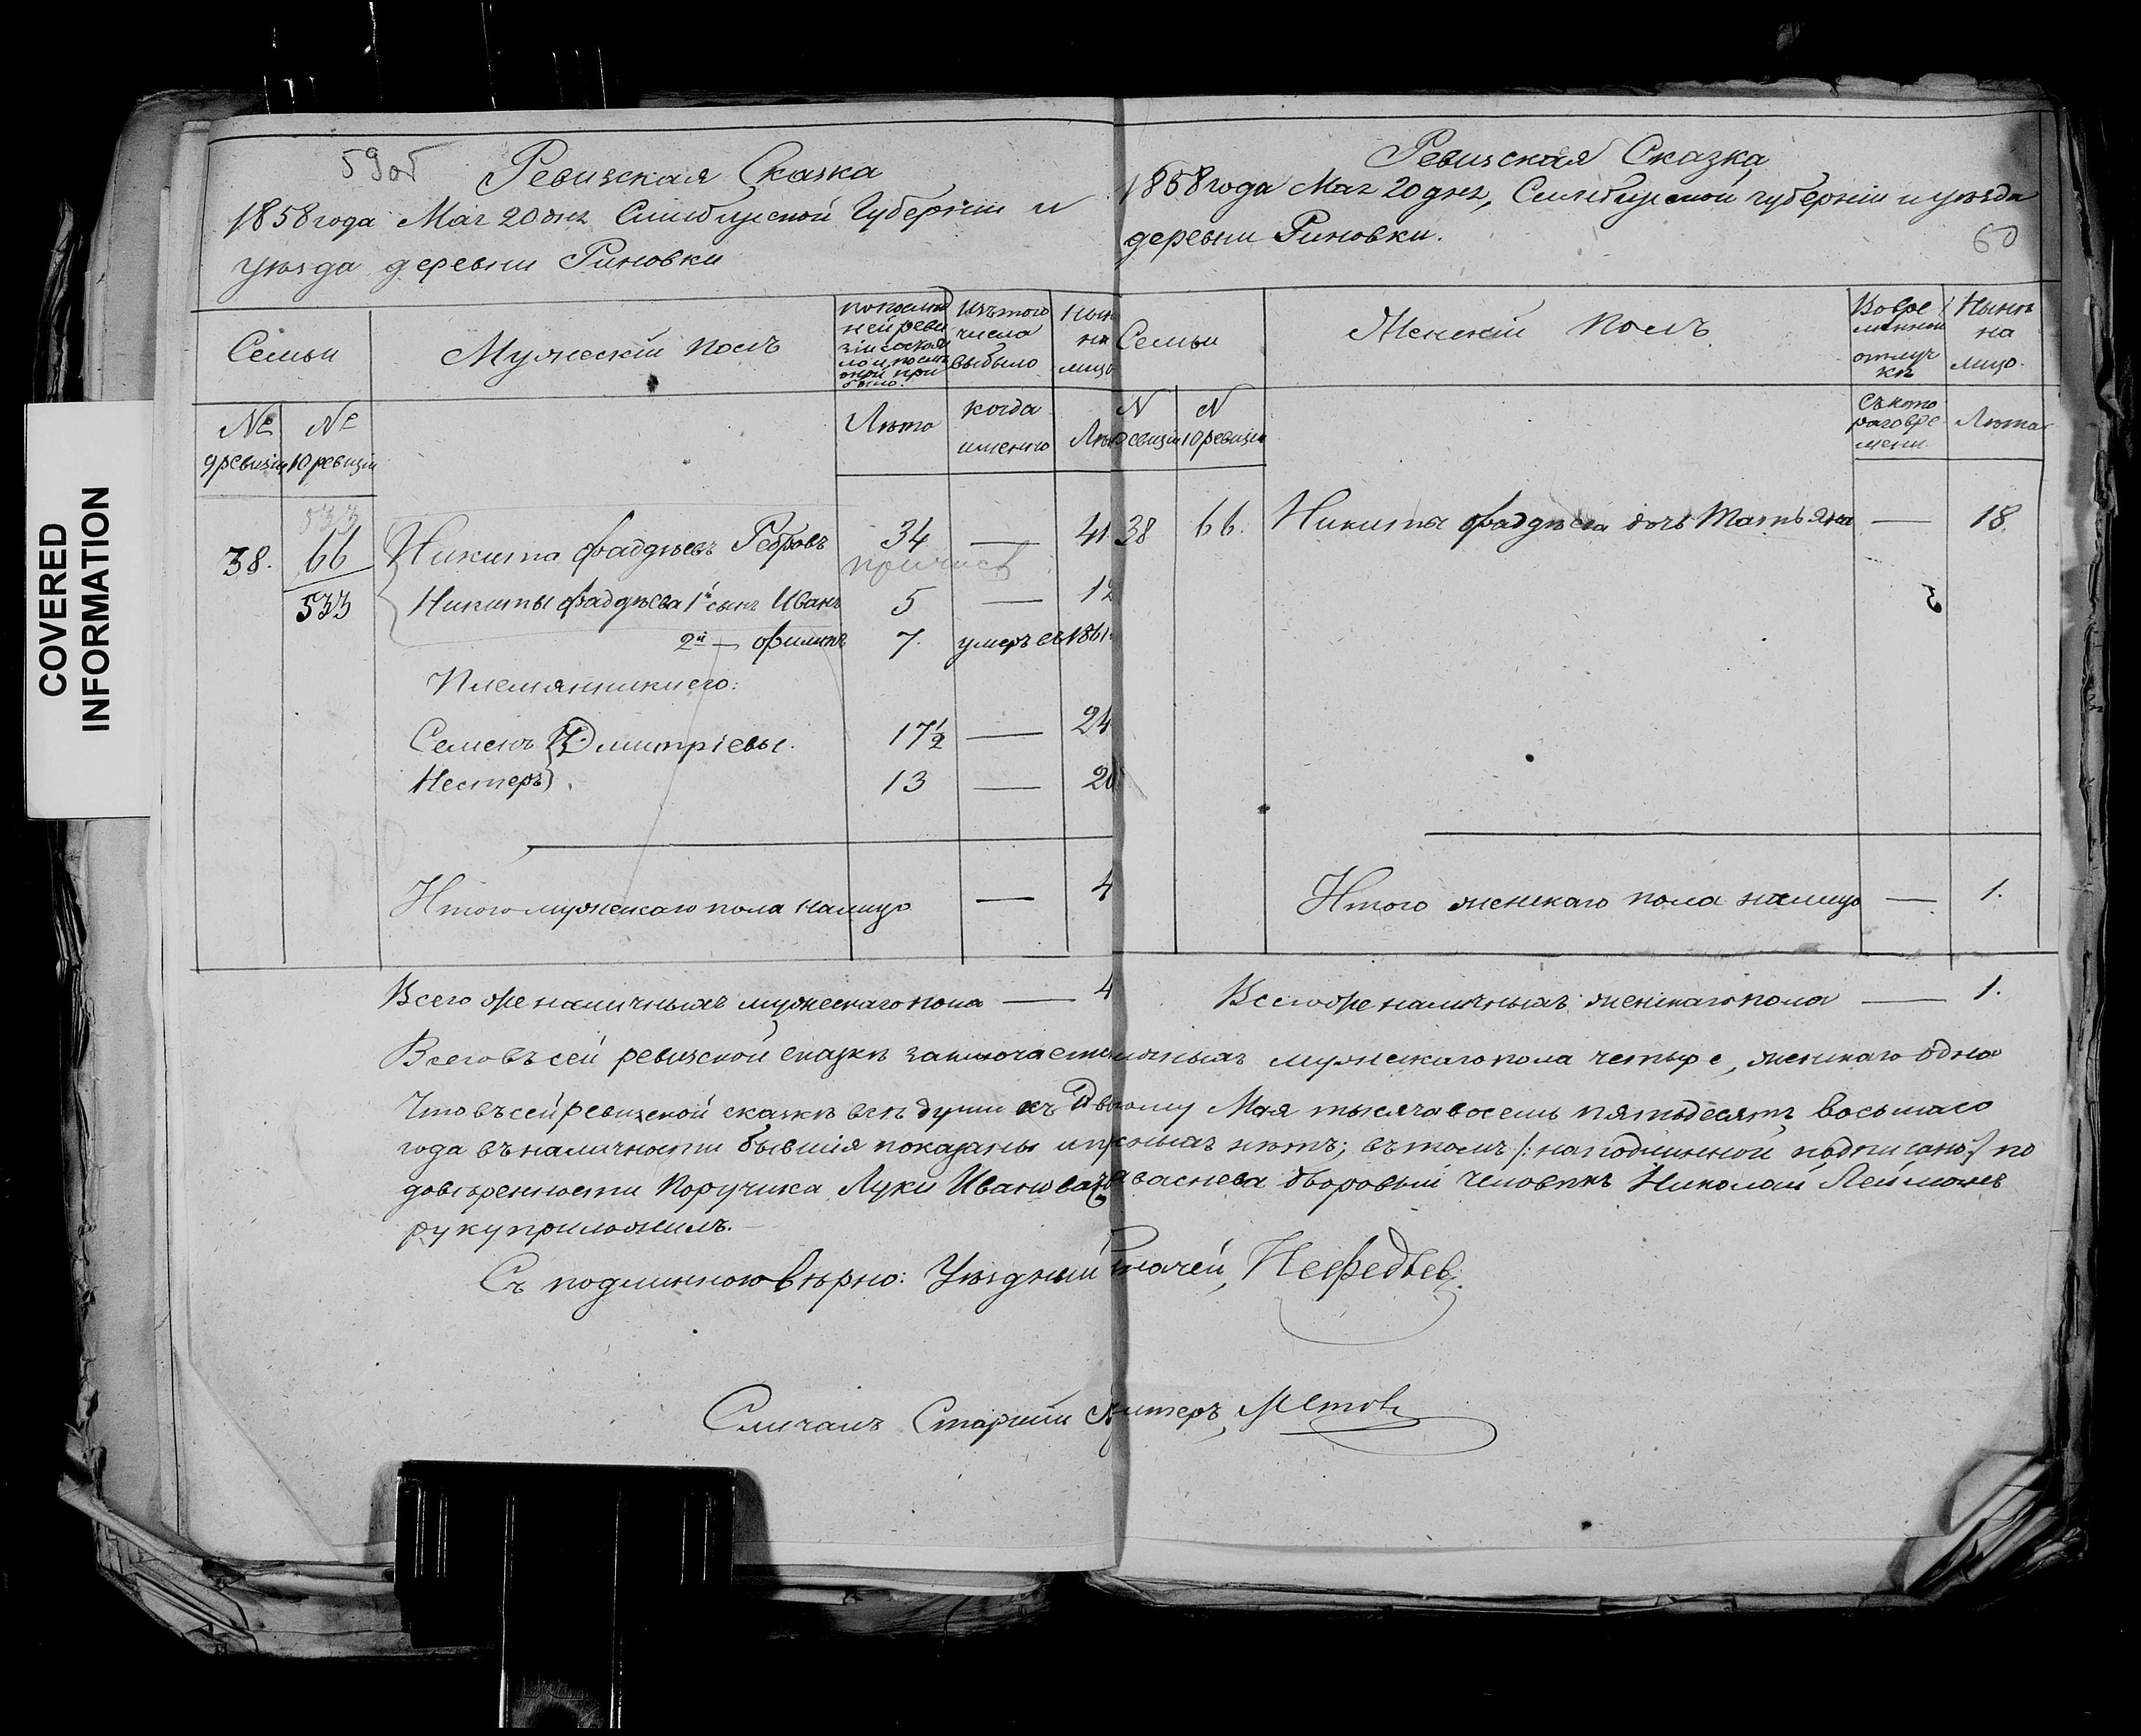 COVERED
INFORMATION
59об
Ревизская Сказка
1858 года Мая 20 дня Симбирской Губернии и
уѣзда деревни Риновки
Семьи
Мужескій полъ
по послѣд
ней реви
зіи состоя
ло и послѣ
оной при
было.
Изъ того
числа
выбыло
Нынѣ
на
лицо
№ 9 ревизіи
№ 10 ревизіи
Лѣта
когда
именно
Лѣта
533
38. 66 Никита Фадѣевъ Ребровъ 34 — 41
533 Никиты Фадѣева 1й сынъ Иванъ 5 — 12
2й — Филипъ 7. умеръ въ 1861
Племянники его:
Семенъ Дмитріевы. 17½ — 24
Нестеръ 13 — 20
Итого мужескаго пола налицо — 4
Всего же наличныхъ мужескаго пола — 4
Ревизская Сказка
1858 года Мая 20 дня, Симбирской губерніи и уѣзда
деревни Риновки.
60
Семьи
Женскій полъ
Во вре
менной
отлуч
кѣ
Нынѣ
на
лицо.
N ревизіи
N 10 ревизіи
съ кото
раго вре
мени
Лѣта
38 66. Никиты Фадѣева дочь Татьяна — 18.
Итого женскаго пола налицо — 1.
Всего же наличныхъ женскаго пола — 1.
Всего въ сей ревизской сказкѣ заключается мужескаго пола четыре, женскаго одна
Что въ сей ревизской сказкѣ всѣ души къ Мая тысяча восемь пятьдесятъ восьмаго
года въ наличности бывшія показаны и нѣтъ; въ томъ /: на подлинной подписано :/ по
довѣренности Поручика Луки Иванова дворовый человѣкъ Николай
руку приложилъ.—
Съ подлинною вѣрно: Уѣздный Казначей, Нефедьевъ
Сличалъ Старшій